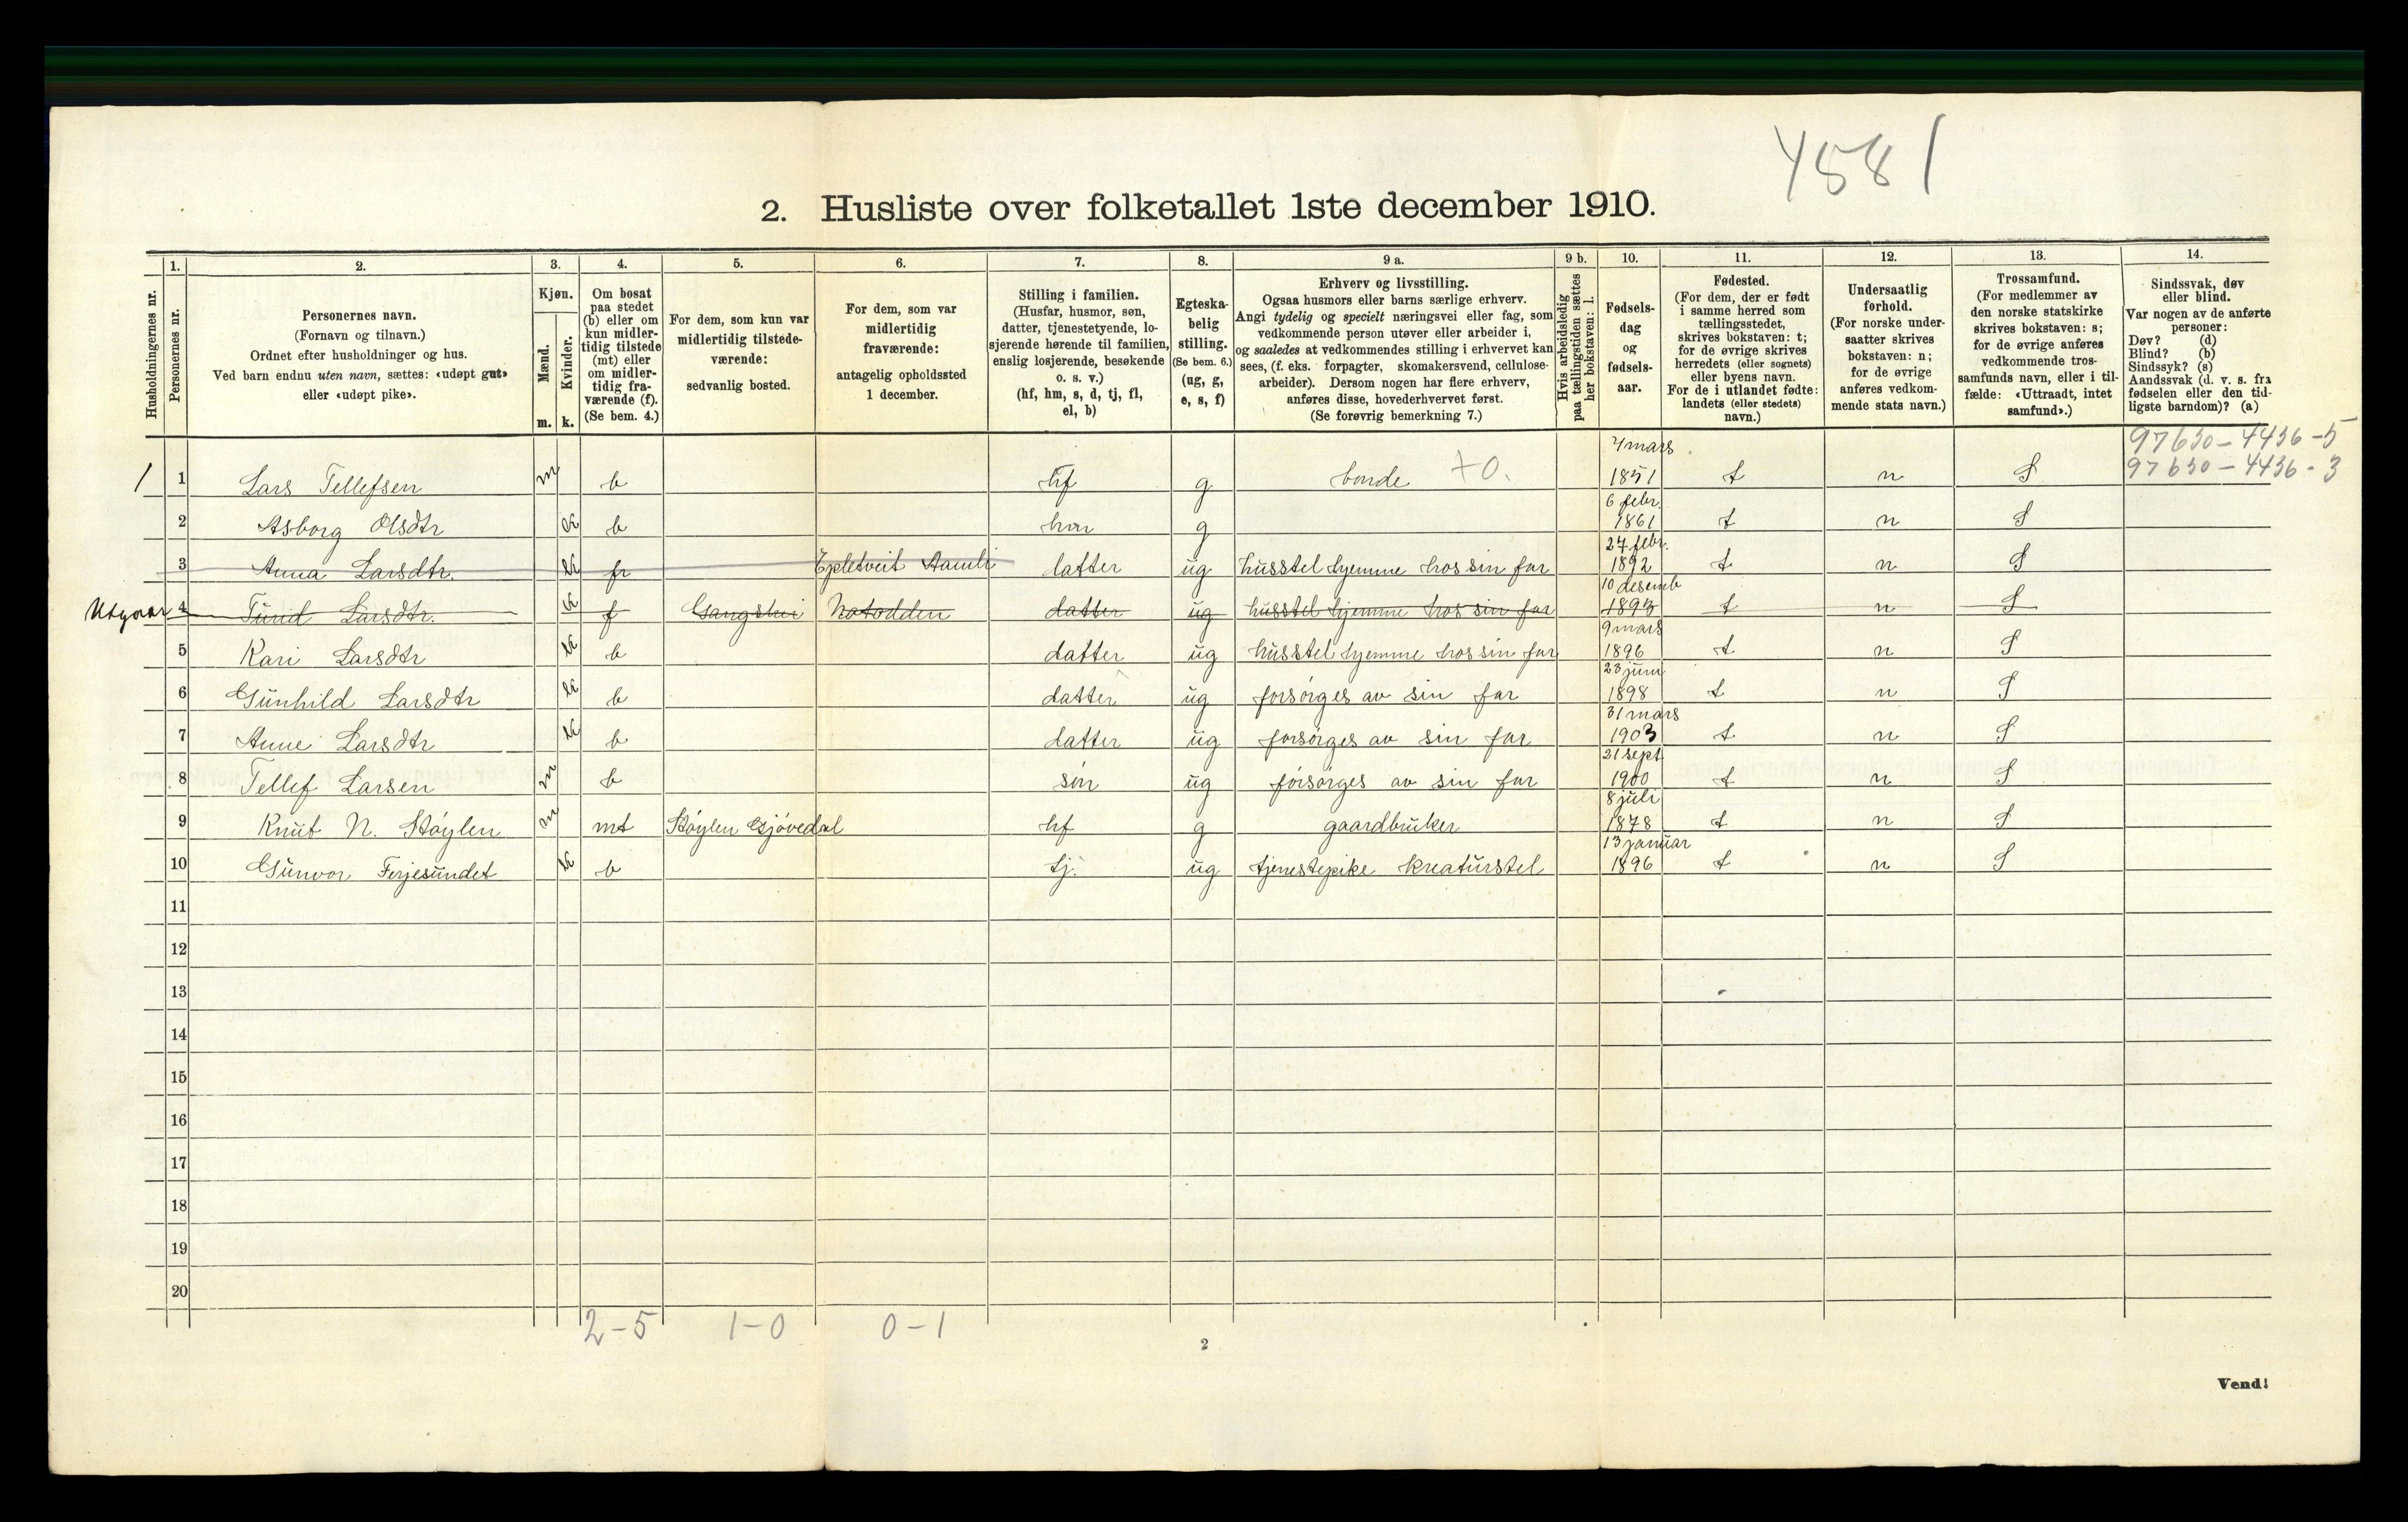 4581
2. Husliste over folketallet 1ste december 1910.
Husholdningernes nr.
1.
Personernes nr.
2.
Personernes navn.
(Fornavn og tilnavn.)
Ordnet efter husholdninger og hus.
Ved barn endnu uten navn, sættes: «udøpt gut»
eller «udøpt pike».
3.
Kjøn.
Mænd.
m.
Kvinder.
k.
4.
Om bosat
paa stedet
(b) eller om
kun midler-
tidig tilstede
(mt) eller
om midler-
tidig fra-
værende (f).
(Se bem. 4.)
5.
For dem, som kun var
midlertidig tilstede-
værende:
sedvanlig bosted.
6.
For dem, som var
midlertidig
fraværende:
antagelig opholdssted
1 december.
7.
Stilling i familien.
(Husfar, husmor, søn,
datter, tjenestetyende, lo-
sjerende hørende til familien,
enslig losjerende, besøkende
o. s. v.)
(hf, hm, s, d, tj, fl,
el, b)
8.
Egteska-
belig
stilling.
(Se bem. 6.)
(ug, g,
e, s, f)
9 a.
Erhverv og livsstilling.
Ogsaa husmors eller barns særlige erhverv.
Angi tydelig og specielt næringsvei eller fag, som
vedkommende person utøver eller arbeider i,
og saaledes at vedkommendes stilling i erhvervet kan
sees, (f. eks. forpagter, skomakersvend, cellulose-
arbeider). Dersom nogen har flere erhverv,
anføres disse, hovederhvervet først.
(Se forøvrig bemerkning 7.)
9 b.
Hvis arbeidsledig
paa tællingstiden sættes
her bokstaven: l.
10.
Fødsels-
dag
og
fødsels-
aar.
11.
Fødested.
(For dem, der er født
i samme herred som
tællingsstedet,
skrives bokstaven: t;
for de øvrige skrives
herredets (eller sognets)
eller byens navn.
For de i utlandet fødte:
landets (eller stedets)
navn.)
12.
Undersaatlig
forhold.
(For norske under-
saatter skrives
bokstaven: n;
for de øvrige
anføres vedkom-
mende stats navn.)
13.
Trossamfund.
(For medlemmer av
den norske statskirke
skrives bokstaven: s;
for de øvrige anføres
vedkommende tros-
samfunds navn, eller i til-
fælde: «Uttraadt, intet
samfund».)
14.
Sindssvak, døv
eller blind.
Var nogen av de anførte
personer:
Døv? (d)
Blind? (b)
Sindssyk? (s)
Aandssvak (d. v. s. fra
fødselen eller den tid-
ligste barndom)? (a)
97630-4436-5
97630-4436-3
1 1 Lars Tellefsen m b hf g bonde +0. 4 mars 1851 t n S
2 Asborg Olsdtr k b hm g 6 febr. 1861 t n S
3 Anna Larsdtr. k fr Epletveit Aamli datter ug husstel hjemme hos sin far 27 febr. 1892 t n S
Utgaar 4 Turid Larsdtr. k f Gangshei Notodden datter ug husstel hjemme hos sin far 10 desemb 1893 t n S
5 Kari Larsdtr k b datter ug husstel hjemme hos sin far 9 mars 1896 t n S
6 Gunhild Larsdtr k b datter ug forsørges av sin far 23 juni 1898 t n S
7 Anne Larsdtr k b datter ug forsørges av sin far 31 mars 1903 t n S
8 Tellef Larsen m b søn ug forsørges av sin far 21 sept 1900 t n S
9 Knut N. Støylen m mt Støylen Gjøvedal hf g gaardbruker 8 juli 1878 t n S
10 Gunvor Ferjesundet k b tj. ug tjenestepike kreaturstel 13 januar 1896 t n S
11
12
13
14
15
16
17
18
19
20
2-5 1-0 0-1
2
Vend!